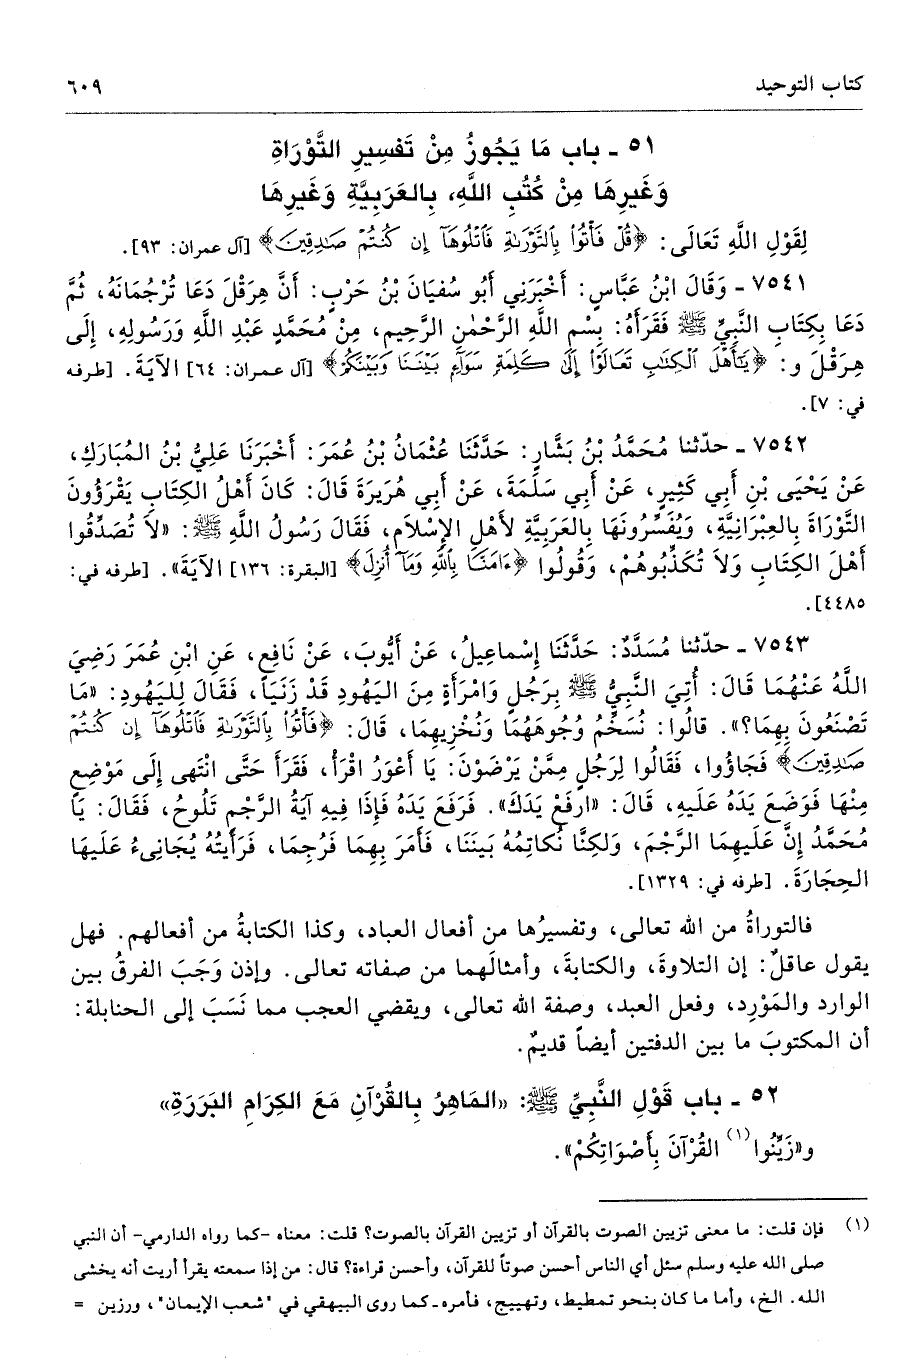 كتاب التوحيد ٦٠٩
٥١ - باب مَا يَجُوزُ مِنْ تَفْسِيرِ التَّوْرَاةِ
وَغَيرِهَا مِنْ كُتُبِ اللَّهِ، بِالعَرَبِيَّةِ وَغَيرِهَا
لِقَوْلِ اللَّهِ تَعَالَى: ﴿قُلْ فَأْتُوا۟ بِٱلتَّوْرَىٰةِ فَٱتْلُوهَآ إِن كُنتُمْ صَـٰدِقِينَ﴾ [آل عمران: ٩٣].
٧٥٤١ - وَقَالَ ابْنُ عَبَّاسٍ: أَخْبَرَنِي أَبُو سُفيَانَ بْنُ حَرْبٍ: أَنَّ هِرَقْلَ دَعَا تَرْجُمَانَهُ، ثُمَّ
دَعَا بِكِتَابِ النَّبِيِّ ﷺ فَقَرَأَهُ: بِسْمِ اللَّهِ الرَّحْمٰنِ الرَّحِيمِ، مِنْ مُحَمَّدٍ عَبْدِ اللَّهِ وَرَسُولِهِ، إِلَى
هِرَقْلَ و: ﴿يَـٰٓأَهْلَ ٱلْكِتَـٰبِ تَعَالَوْا۟ إِلَىٰ كَلِمَةٍ سَوَآءٍۭ بَيْنَنَا وَبَيْنَكُمْ﴾ [آل عمران: ٦٤] الآيَةَ. [طرفه
في: ٧].
٧٥٤٢ - حدّثنا مُحَمَّدُ بْنُ بَشَّارٍ: حَدَّثَنَا عُثْمَانُ بْنُ عُمَرَ: أَخْبَرَنَا عَلِيُّ بْنُ المُبَارَكِ،
عَنْ يَحْيَى بْنِ أَبِي كَثِيرٍ، عَنْ أَبِي سَلَمَةَ، عَنْ أَبِي هُرَيرَةَ قَالَ: كَانَ أَهْلُ الكِتَابِ يَقْرَؤُونَ
التَّوْرَاةَ بِالعِبْرَانِيَّةِ، وَيُفَسِّرُونَهَا بِالعَرَبِيَّةِ لأَهْلِ الإِسْلَامِ، فَقَالَ رَسُولُ اللَّهِ ﷺ: «لَا تُصَدِّقُوا
أَهْلَ الكِتَابِ وَلَا تُكَذِّبُوهُمْ، وَقُولُوا ﴿ءَامَنَّا بِٱللَّهِ وَمَآ أُنزِلَ﴾ [البقرة: ١٣٦] الآيَةَ». [طرفه في:
٤٤٨٥].
٧٥٤٣ - حدّثنا مُسَدَّدٌ: حَدَّثَنَا إِسْماعِيلُ، عَنْ أَيُّوبَ، عَنْ نَافِعٍ، عَنِ ابْنِ عُمَرَ رَضِيَ
اللَّهُ عَنْهُمَا قَالَ: أُتِيَ النَّبِيُّ ﷺ بِرَجُلٍ وَامْرَأَةٍ مِنَ اليَهُودِ قَدْ زَنَيَا، فَقَالَ لِليَهُودِ: «مَا
تَصْنَعُونَ بِهِمَا؟». قالُوا: نُسَخِّمُ وُجُوهَهُمَا وَنُخْزِيهِمَا، قَالَ: ﴿فَأْتُوا۟ بِٱلتَّوْرَىٰةِ فَٱتْلُوهَآ إِن كُنتُمْ
صَـٰدِقِينَ﴾ فَجَاؤُوا، فَقَالُوا لِرَجُلٍ مِمَّنْ يَرْضَوْنَ: يَا أَعْوَرُ اقْرَأْ، فَقَرَأَ حَتَّى انْتَهى إِلَى مَوْضِعٍ
مِنْهَا فَوَضَعَ يَدَهُ عَلَيهِ، قَالَ: «ارفَعْ يَدَكَ». فَرَفَعَ يَدَهُ فَإِذَا فِيهِ آيَةُ الرَّجْمِ تَلُوحُ، فَقَالَ: يَا
مُحَمَّدُ إِنَّ عَلَيهِمَا الرَّجْمَ، وَلَكِنَّا نُكَاتِمُهُ بَينَنَا، فَأَمَرَ بِهِمَا فَرُجِمَا، فَرَأَيتُهُ يُجَانِىءُ عَلَيهَا
الحِجَارَةَ. [طرفه في: ١٣٢٩].
فالتوراةُ من الله تعالى، وتفسيرُها من أفعال العباد، وكذا الكتابةُ من أفعالهم. فهل
يقول عاقلٌ: إن التلاوةَ، والكتابةَ، وأمثالَهما من صفاته تعالى. وإذن وَجَبَ الفرقُ بين
الوارد والمَوْرِد، وفعل العبد، وصفة الله تعالى، ويقضي العجب مما نَسَبَ إلى الحنابلة:
أن المكتوبَ ما بين الدفتين أيضاً قديمٌ.
٥٢ - باب قَوْلِ النَّبِيِّ ﷺ: «المَاهِرُ بِالقُرْآنِ مَعَ الكِرَامِ البَرَرَةِ»
و«زَيِّنُوا(١) القُرْآنَ بِأَصْوَاتِكُمْ».
(١) فإن قلت: ما معنى تزيين الصوت بالقرآن أو تزيين القرآن بالصوت؟ قلت: معناه -كما رواه الدارمي- أن النبي
صلى الله عليه وسلم سئل أي الناس أحسن صوتاً للقرآن، وأحسن قراءة؟ قال: من إذا سمعته يقرأ أريت أنه يخشى
الله. الخ، وأما ما كان بنحو تمطيط، وتهييج، فأمره-كما روى البيهقي في "شعب الإيمان"، ورزين =